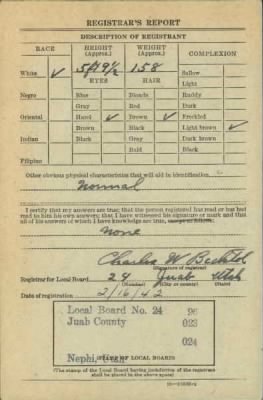 REGISTRAR'S REPORT
DESCRIPTION OF REGISTRANT
RACE HEIGHT (Approx.) WEIGHT (Approx.) COMPLEXION
White ✓ 5ft 9 1/2 158 Sallow
EYES HAIR Light
Negro Blue Blonde Ruddy
Gray Red Dark
Oriental Hazel ✓ Brown ✓ Freckled
Brown Black Light brown ✓
Indian Black Gray Dark brown
Bald Black
Filipino
Other obvious physical characteristics that will aid in identification
Normal
I certify that my answers are true; that the person registered has read or has had
read to him his own answers; that I have witnessed his signature or mark and that
all of his answers of which I have knowledge are true, except as follows:
None
Charles W
(Signature of registrar)
Registrar for Local Board 24 Juab Utah
(Number) (City or county) (State)
Date of registration 2/16/42
Local Board No. 24 96
Juab County 023
024
Nephi, Utah
(STAMP OF LOCAL BOARD)
(The stamp of the Local Board having jurisdiction of the registrant
shall be placed in the above space)